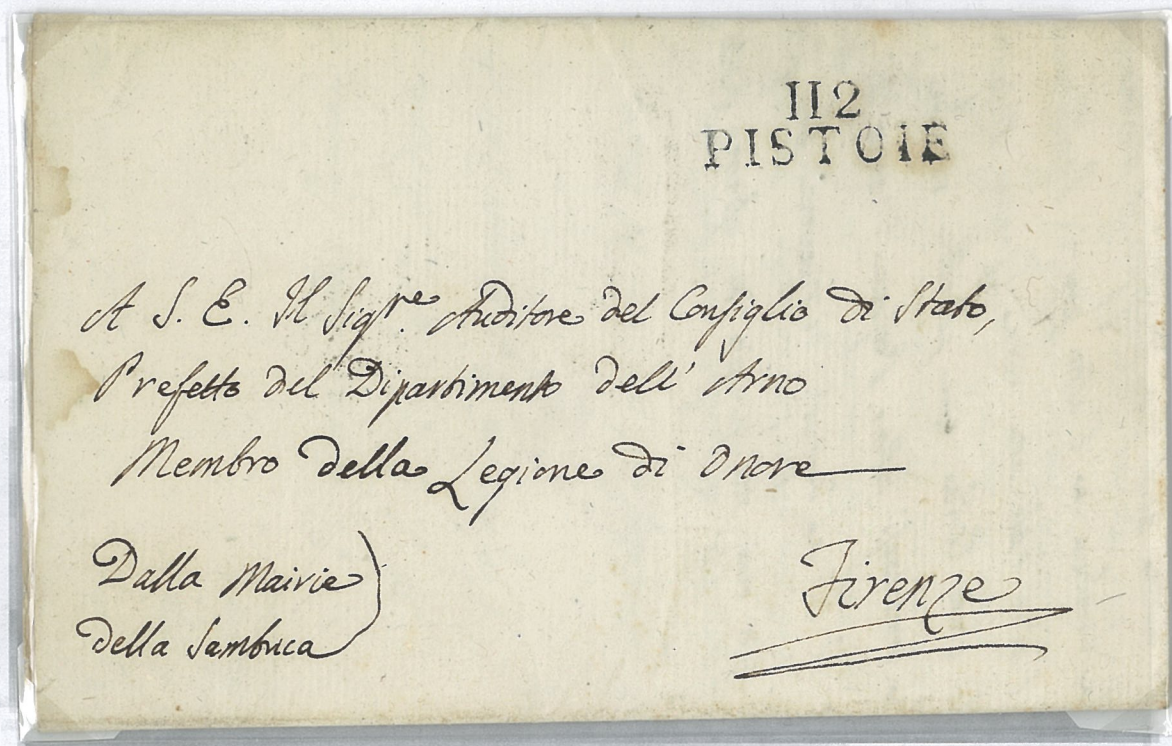 112
PISTOIE
A S. E. Il Sigre. Auditore del Consiglio di Stato,
Prefetto del Dipartimento dell' Arno
Membro della Legione di Onore
Dalla Mairie
della Sambuca
Firenze